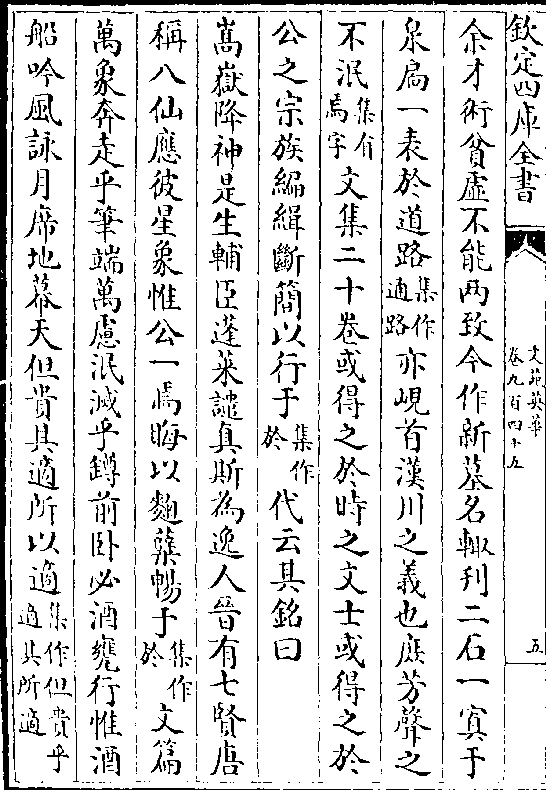 欽定四庫全書
文苑英華
卷九百四十五
五
余才術貧虛不能两致今作新墓名輙刋二石一寘于
泉扃一表於道路集作通路亦峴首漢川之義也庶芳聲之
不泯集有焉字文集二十卷或得之於時之文士或得之於
公之宗族編緝斷簡以行于集作於代云其銘曰
嵩嶽降神是生輔臣蓬萊譴真斯為逸人晉有七賢唐
稱八仙應彼星象惟公一焉晦以麴蘖暢于集作於文篇
萬象奔走乎筆端萬慮泯滅乎罇前卧必酒甕行惟酒
船吟風詠月席地幕天但貴其適所以適集作但貴乎適其所適